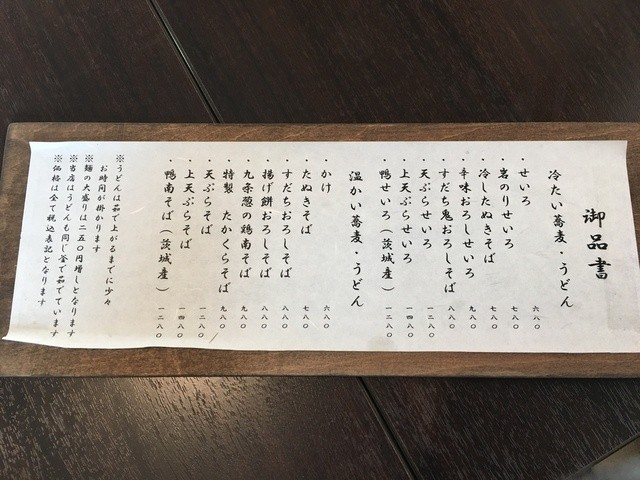 御品書
冷たい蕎麦・うどん
・せいろ 六八〇
・岩のりせいろ 七八〇
・冷したぬきそば 七八〇
・辛味おろしせいろ 九八〇
・すだち鬼おろしそば 八八〇
・天ぷらせいろ 一二八〇
・上天ぷらせいろ 一四八〇
・鴨せいろ(茨城産) 一二八〇
温かい蕎麦・うどん
・かけ 六八〇
・たぬきそば 七八〇
・すだちおろしそば 八八〇
・揚げ餅おろしそば 八八〇
・九条葱の鶏南そば 九八〇
・特製 たかくらそば 九八〇
天ぷらそば 一二八〇
・上天ぷらそば 一四八〇
・鴨南そば(茨城産) 一二八〇
※うどんは茹で上がるまでに少々
お時間が掛かります
※麺の大盛りは二五〇円増しとなります
※当店はうどんも同じ釜で茹でています
※価格は全て税込表記となります